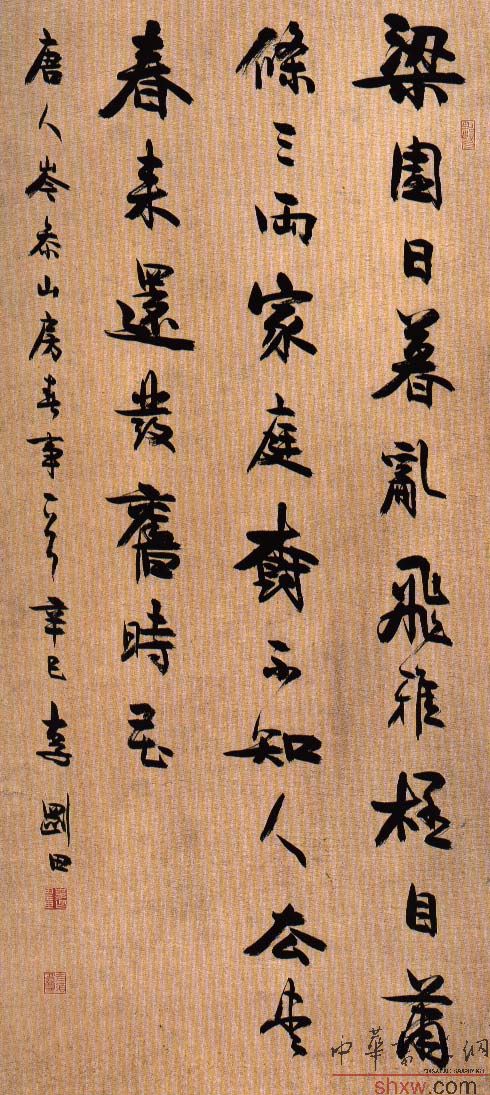 梁園日暮亂飛雅極目蕭
條三兩家庭樹不知人去盡
春來還發舊時花
唐人岑參山房春事一首 辛巳 李剛田
shxw.com